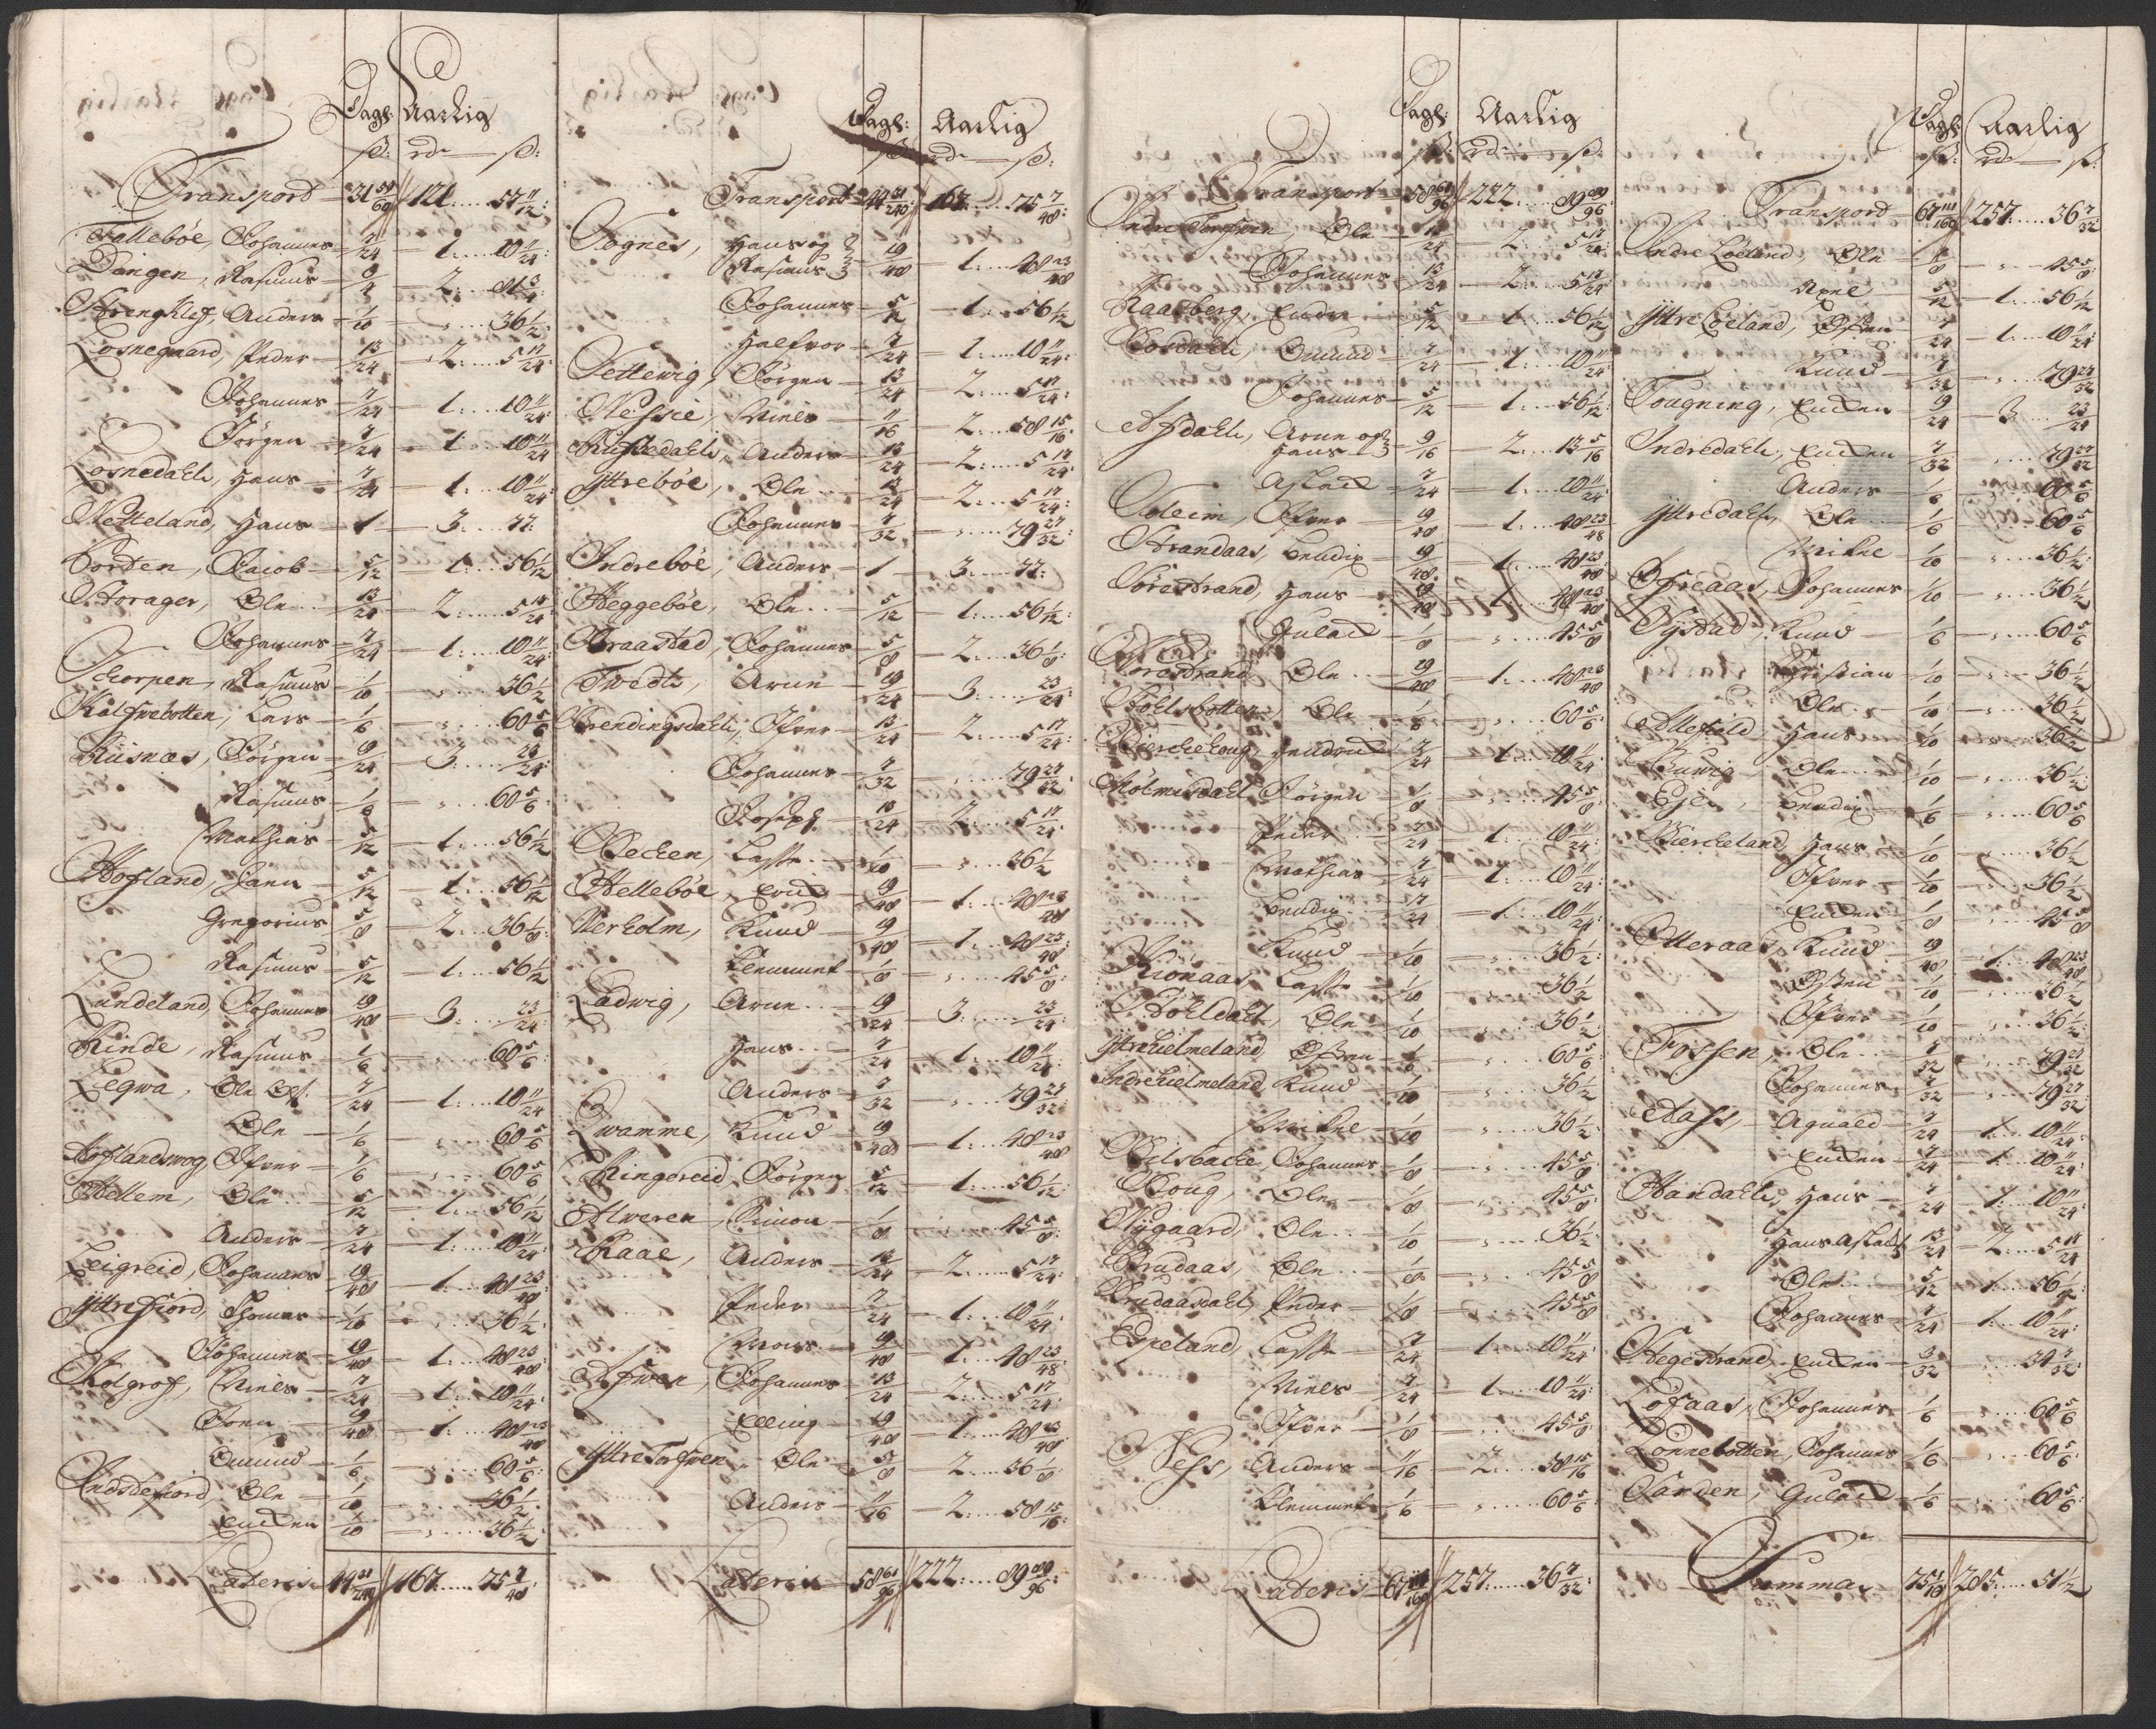 Dagl: Aarlig
ß: rdr ß:
Transport 31 59/60 121 57 11/12
Tallebøe, Johannes 7/24 1 10 11/24
Dingen, Rasmus 3/4 2 81 3/4
Strengklef, Anders 1/10 " 36 1/2
Losnegaard, Peder 13/24 2 5 17/24
Johannes 7/24 1 10 11/24
Jørgen 7/24 1 10 11/24
Losnedahl, Hans 7/24 1 10 11/24
Netteland, Hans 1 3 77
Porten, Jacob 5/12 1 56 1/12
Storager, Ole 13/24 2 5 17/24
Johannes 7/24 1 10 11/24
Schorpen, Rasmus 1/10 " 36 1/2
Kalfvebotten, Lars 1/6 " 60 5/6
Riisnæs, Jørgen 19/24 3 23/24
Rasmus 1/6 " 60 5/6
Mathias 5/12 1 56 1/12
Hofland, Jann 5/12 1 56 1/12
Gregorius 5/8 2 36 1/8
Rasmus 5/12 1 56 1/12
Lundeland, Johannes 19/48 3 23/24
Rinde, Rasmus 1/6 " 60 5/6
Legwa, Ole 7/24 1 10 11/24
Ole 1/6 " 60 5/6
Hoflandswog, Ifver 1/6 " 60 5/6
Hellem, Ole 5/12 1 56 1/12
Anders 7/24 1 10 11/24
Leigreid, Johannes 19/48 1 48 23/48
Yttrefiord, Thomas 1/10 " 36 1/2
Johannes 19/48 1 48 23/48
Kolgrof, Niels 7/24 1 10 11/24
Joen 19/48 1 48 23/48
Omund 1/6 " 60 5/6
Indstefiord, Ole 1/10 " 36 1/2
Endren 1/10 " 36 1/2
Lateris 44 31/240 167 75 7/48
Dagl: Aarlig
ß: rdr ß:
Transport 44 31/240 167 75 7/48
Sognes, Hans og Rasmus 19/48 1 48 23/48
Johannes 5/12 1 56 1/12
Halfvor 7/24 1 10 11/24
Tettewig, Jørgen 13/24 2 5 17/24
Nessie, Niels 11/16 2 58 15/16
Anders 13/24 2 5 17/24
Yttrebøe, Ole 13/24 2 5 17/24
Johannes 7/32 " 79 27/32
Indrebøe, Anders 1 3 77
Heggebøe, Ole 5/12 1 56 1/12
Straastad, Johannes 5/8 2 36 1/8
Twedt, Arne 19/24 3 23/24
Brendingsdahl, Ifver 13/24 2 5 17/24
Johannes 7/32 " 79 27/32
Joseph 13/24 2 5 17/24
Becken, Lasse 1/10 " 36 1/2
Hellebøe, Erik 19/48 1 48 23/48
Verholm, Knud 19/48 1 48 23/48
Clemmet 1/8 " 45 5/8
Ladwig, Arne 19/24 3 23/24
Hans 7/24 1 10 11/24
Anders 7/32 " 79 27/32
Qwamme, Knud 19/48 1 48 23/48
Ringereid, Jørgen 5/12 1 56 1/12
Alweren, Simon 1/8 " 45 5/8
Raae, Anders 13/24 2 5 17/24
Peder 7/24 1 10 11/24
Mons 19/48 1 48 23/48
Johannes 13/24 2 5 17/24
Elling 19/48 1 48 23/48
Yttre Torfwen, Ole 5/8 2 36 1/8
Anders 11/16 2 58 15/16
Lateris 58 61/96 222 89 89/96
Dagl: Aarlig
ß: rdr ß:
Transport 58 61/96 222 89 89/96
Indre Torfwen, Ole 13/24 2 5 17/24
Johannes 13/24 2 5 17/24
Raasberg, Endre 5/12 1 56 1/12
Omund 7/24 1 10 11/24
Johannes 5/12 1 56 1/12
Arne og Hans 9/16 2 13 5/16
Aslack 7/24 1 10 11/24
Soleim, Ifver 19/48 1 48 23/48
Strandaas, Bendix 19/48 1 48 23/48
Sørestrand, Hans 19/48 1 48 23/48
Gulack 1/8 " 45 5/8
Norestrand, Ole 19/48 1 48 23/48
Bøhlsbotten, Ole 1/6 " 60 5/6
Birchehoug, 7/24 1 10 11/24
Holmesdahl, Jørgen 1/8 " 45 5/8
Peder 7/24 1 10 11/24
Mathias 7/24 1 10 11/24
Bendix 7/24 1 10 11/24
Knud 1/10 " 36 1/2
Kionaas, Lasse 1/10 " 36 1/2
Ole 1/10 " 36 1/2
Yttrehielmeland, Østen 1/6 " 60 5/6
Indrehielmeland, Knud 1/10 " 36 1/2
Mikkel 1/10 " 36 1/2
Johannes 1/8 " 45 5/8
Houg, Ole 1/8 " 45 5/8
Nygaard, Ole 1/10 " 36 1/2
Brudaas, Ole 1/8 " 45 5/8
Brudaasdahl, Peder 1/8 " 45 5/8
Espeland, Lasse 7/24 1 10 11/24
Niels 7/24 1 10 11/24
Ifver 1/8 " 45 5/8
Ness, Anders 11/16 2 58 15/16
Clemmet 1/6 " 60 5/6
Lateris 67 111/160 257 36 7/32
Dagl: Aarlig
ß: rdr ß:
Transport 67 111/160 257 36 7/32
Indre Løeland, Ole 1/8 " 45 5/8
Axel 5/12 1 56 1/12
Yttre Løeland, Østen 7/24 1 10 11/24
Knud 7/32 " 79 27/32
Tougning, Endren 19/24 3 23/24
Indredahl, Endren 7/32 " 79 27/32
Anders 1/6 " 60 5/6
Yttredahl, Ole 1/6 " 60 5/6
Mikkel 1/10 " 36 1/2
Johannes 1/10 " 36 1/2
Systad, Knud 1/6 " 60 5/6
Christian 1/10 " 36 1/2
Ole 1/10 " 36 1/2
Hans 1/10 " 36 1/2
Ole 1/10 " 36 1/2
Bendix 1/6 " 60 5/6
Bircheland, Hans 1/10 " 36 1/2
Ifver 1/10 " 36 1/2
Endren 1/8 " 45 5/8
Otteraas, Knud 19/48 1 48 23/48
Østen 1/10 " 36 1/2
Ifver 1/10 " 36 1/2
Fossen, Ole 7/32 " 79 27/32
Johannes 7/32 " 79 27/32
Aass, Aquald 7/24 1 10 11/24
Endren 7/24 1 10 11/24
Handahl, Hans 7/24 1 10 11/24
Hans Aslaks 13/24 2 5 17/24
Ole 5/12 1 56 1/12
Johannes 7/24 1 10 11/24
Hegestrand, Endren 3/32 " 34 7/32
Løfaas, Johannes 1/6 " 60 5/6
Lønnebotten, Johannes 1/6 " 60 5/6
Varden, Gulack 1/6 " 60 5/6
Summa 75 1/10 285 51 1/2